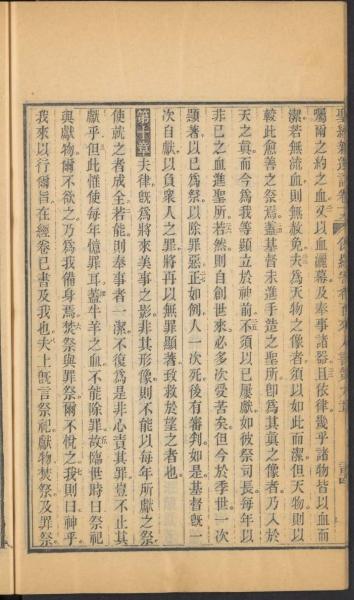 囑爾之約之血又以血灑幕及奉事諸器且依律幾乎諸物皆以血而
潔若無流血則無赦免夫爲天物之像者須以如此而潔但天物則以
較此愈善之祭焉蓋基督未進手造之聖所卽爲其眞之像者乃入於
天之眞而今爲我等顯立於神前不須以己屢獻如彼祭司長每年以
非己之血進聖所若然則自創世來必多次受苦矣但今於季世一次
顯著以己爲祭以除罪惡正如例人一次死後有審判如是基督旣一
次自獻以負衆人之罪將再以無罪顯著致救於望之者也
第十章夫律旣爲將來美事之影非其形像則不能以每年所獻之祭
使就之者成全若能則奉事者一潔不復爲是非心責其罪豈不止其
獻乎但此惟使每年憶罪耳蓋牛羊之血不能除罪故臨世時曰祭祀
與獻物爾不欲之乃爲我備身焉焚祭與罪祭爾不悅之我則曰神乎
我來以行爾旨在經卷已書及我也夫上旣言祭祀獻物焚祭及罪祭